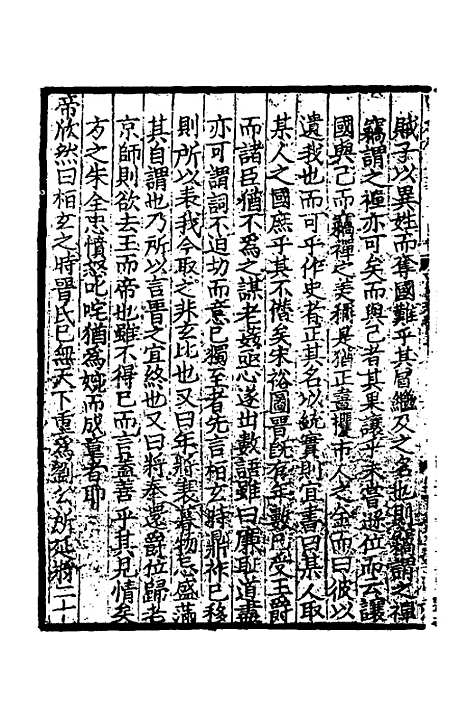 賊子以異姓而奪國難乎其爲繼及之名也則竊謂之禪
竊謂之禪亦可矣而與己者其果讓乎未嘗遜位而云讓
國與己而竊禪之美稱是猶正晝攫市人之金而曰彼以
遺我也而可乎作史者正其名以統實則宜書曰某人取
某人之國庶乎其不僭矣宋裕圖晉既有年數只受王爵
而諸臣猶不爲之謀老姦亟心遂出數語雖曰廉恥道盡
亦可謂詞不迫切而意已獨至者先言桓玄時鼎祚已移
則所以表我今取之非玄比也又曰年將衰暮物忌盛滿
其自謂也乃所以言晉之宜終也又曰將奉還爵位歸老
京師則欲去王而帝也雖不得已而言蓋善乎其見情矣
方之朱全忠憤怒叱咤猶爲婉而成章者耶
帝欣然曰桓玄之時晉氏已無天下重爲劉公所延將二十